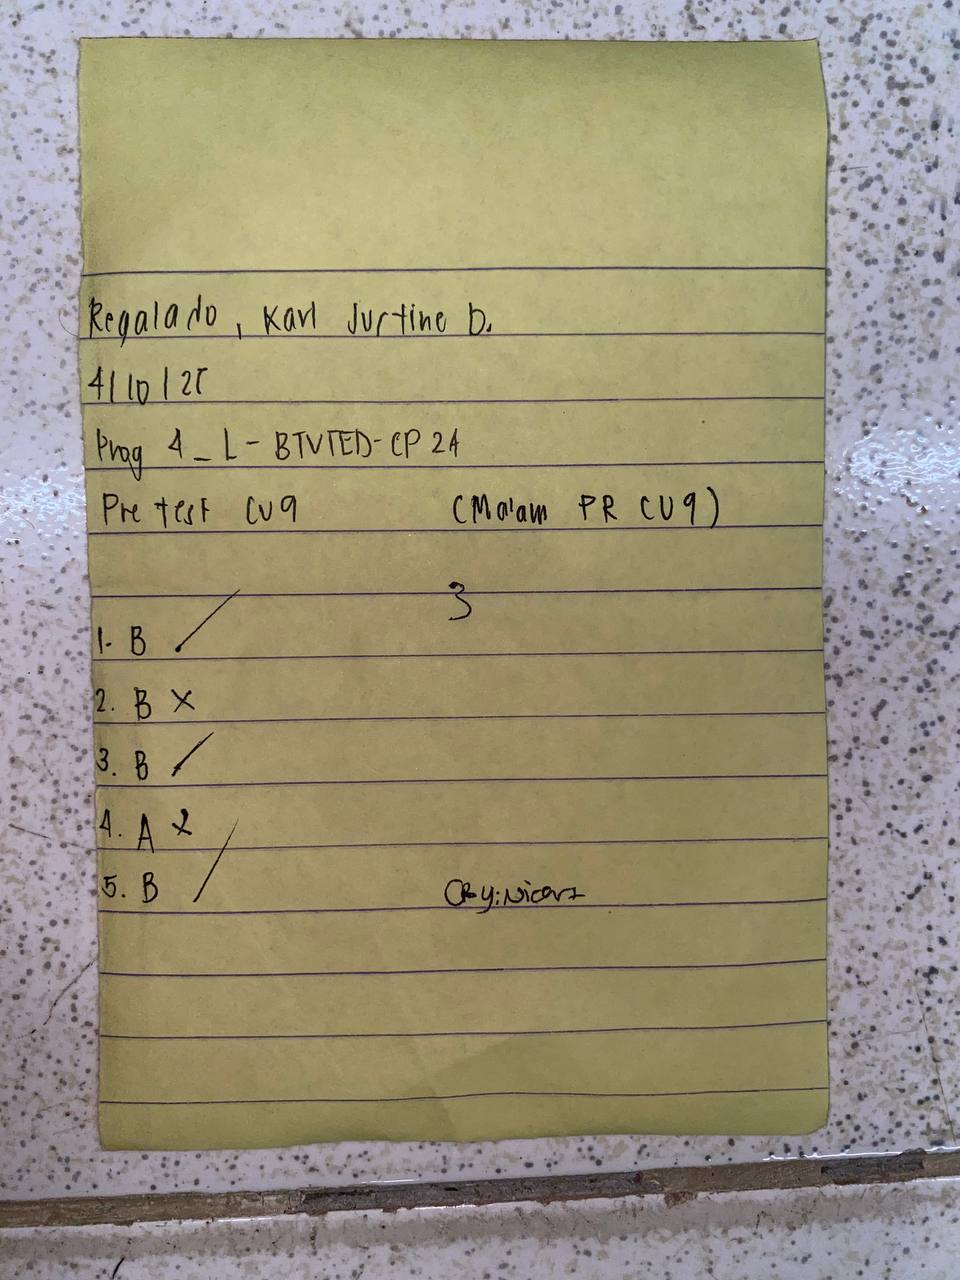 Regalado, Karl Justine D.
4/10/25
Prog 4_L-BTVTED-CP 2A
Pre test CU9 (Ma'am PR CU9)
3
1. B /
2. B ×
3. B /
4. A ×
5. B /
CBy: